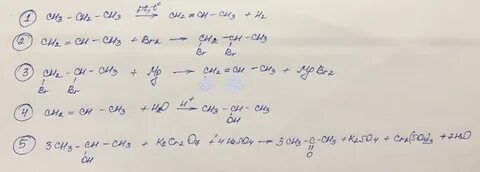 ① CH3 - CH2 - CH3 Pt, t° → CH2 = CH - CH3 + H2
② CH2 = CH - CH3 + Br2 → CH2 - CH - CH3
Br Br
③ CH2 - CH - CH3 + Mg → CH2 = CH - CH3 + MgBr2
Br Br
④ CH2 = CH - CH3 + H2O H+ → CH3 - CH - CH3
OH
⑤ 3CH3 - CH - CH3 + K2Cr2O7 + 4H2SO4 → 3CH3 - C - CH3 + K2SO4 + Cr2(SO4)3 + 7H2O
OH O